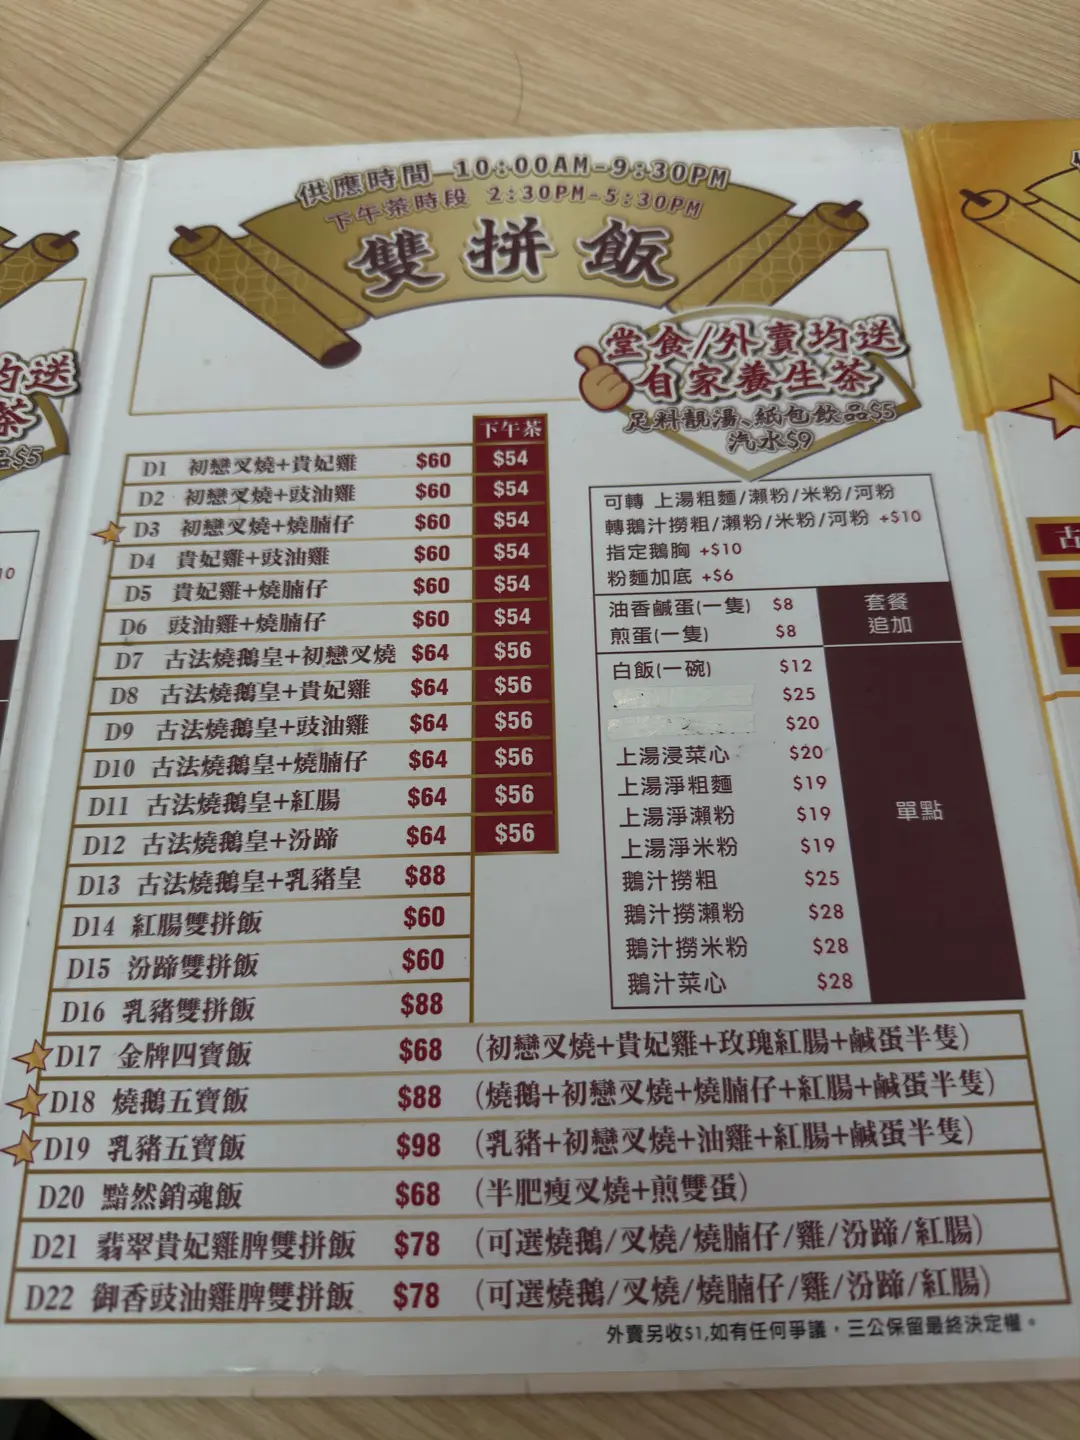 供應時間 10:00AM-9:30PM
下午茶時段 2:30PM-5:30PM
雙拼飯
堂食/外賣均送
自家養生茶
足料靚湯、紙包飲品$5
汽水$9
下午茶
D1 初戀叉燒+貴妃雞 $60 $54
D2 初戀叉燒+豉油雞 $60 $54
D3 初戀叉燒+燒腩仔 $60 $54
D4 貴妃雞+豉油雞 $60 $54
D5 貴妃雞+燒腩仔 $60 $54
D6 豉油雞+燒腩仔 $60 $54
D7 古法燒鵝皇+初戀叉燒 $64 $56
D8 古法燒鵝皇+貴妃雞 $64 $56
D9 古法燒鵝皇+豉油雞 $64 $56
D10 古法燒鵝皇+燒腩仔 $64 $56
D11 古法燒鵝皇+紅腸 $64 $56
D12 古法燒鵝皇+汾蹄 $64 $56
D13 古法燒鵝皇+乳豬皇 $88
D14 紅腸雙拼飯 $60
D15 汾蹄雙拼飯 $60
D16 乳豬雙拼飯 $88
D17 金牌四寶飯 $68 (初戀叉燒+貴妃雞+玫瑰紅腸+鹹蛋半隻)
D18 燒鵝五寶飯 $88 (燒鵝+初戀叉燒+燒腩仔+紅腸+鹹蛋半隻)
D19 乳豬五寶飯 $98 (乳豬+初戀叉燒+油雞+紅腸+鹹蛋半隻)
D20 黯然銷魂飯 $68 (半肥瘦叉燒+煎雙蛋)
D21 翡翠貴妃雞脾雙拼飯 $78 (可選燒鵝/叉燒/燒腩仔/雞/汾蹄/紅腸)
D22 御香豉油雞脾雙拼飯 $78 (可選燒鵝/叉燒/燒腩仔/雞/汾蹄/紅腸)
可轉 上湯粗麵/瀨粉/米粉/河粉
轉鵝汁撈粗/瀨粉/米粉/河粉 +$10
指定鵝胸 +$10
粉麵加底 +$6
油香鹹蛋(一隻) $8
煎蛋(一隻) $8
套餐
追加
白飯(一碗) $12
$25
$20
上湯浸菜心 $20
上湯淨粗麵 $19
上湯淨瀨粉 $19
上湯淨米粉 $19
鵝汁撈粗 $25
鵝汁撈瀨粉 $28
鵝汁撈米粉 $28
鵝汁菜心 $28
單點
外賣另收$1,如有任何爭議,三公保留最終決定權。
均送
茶
品$5
10
古